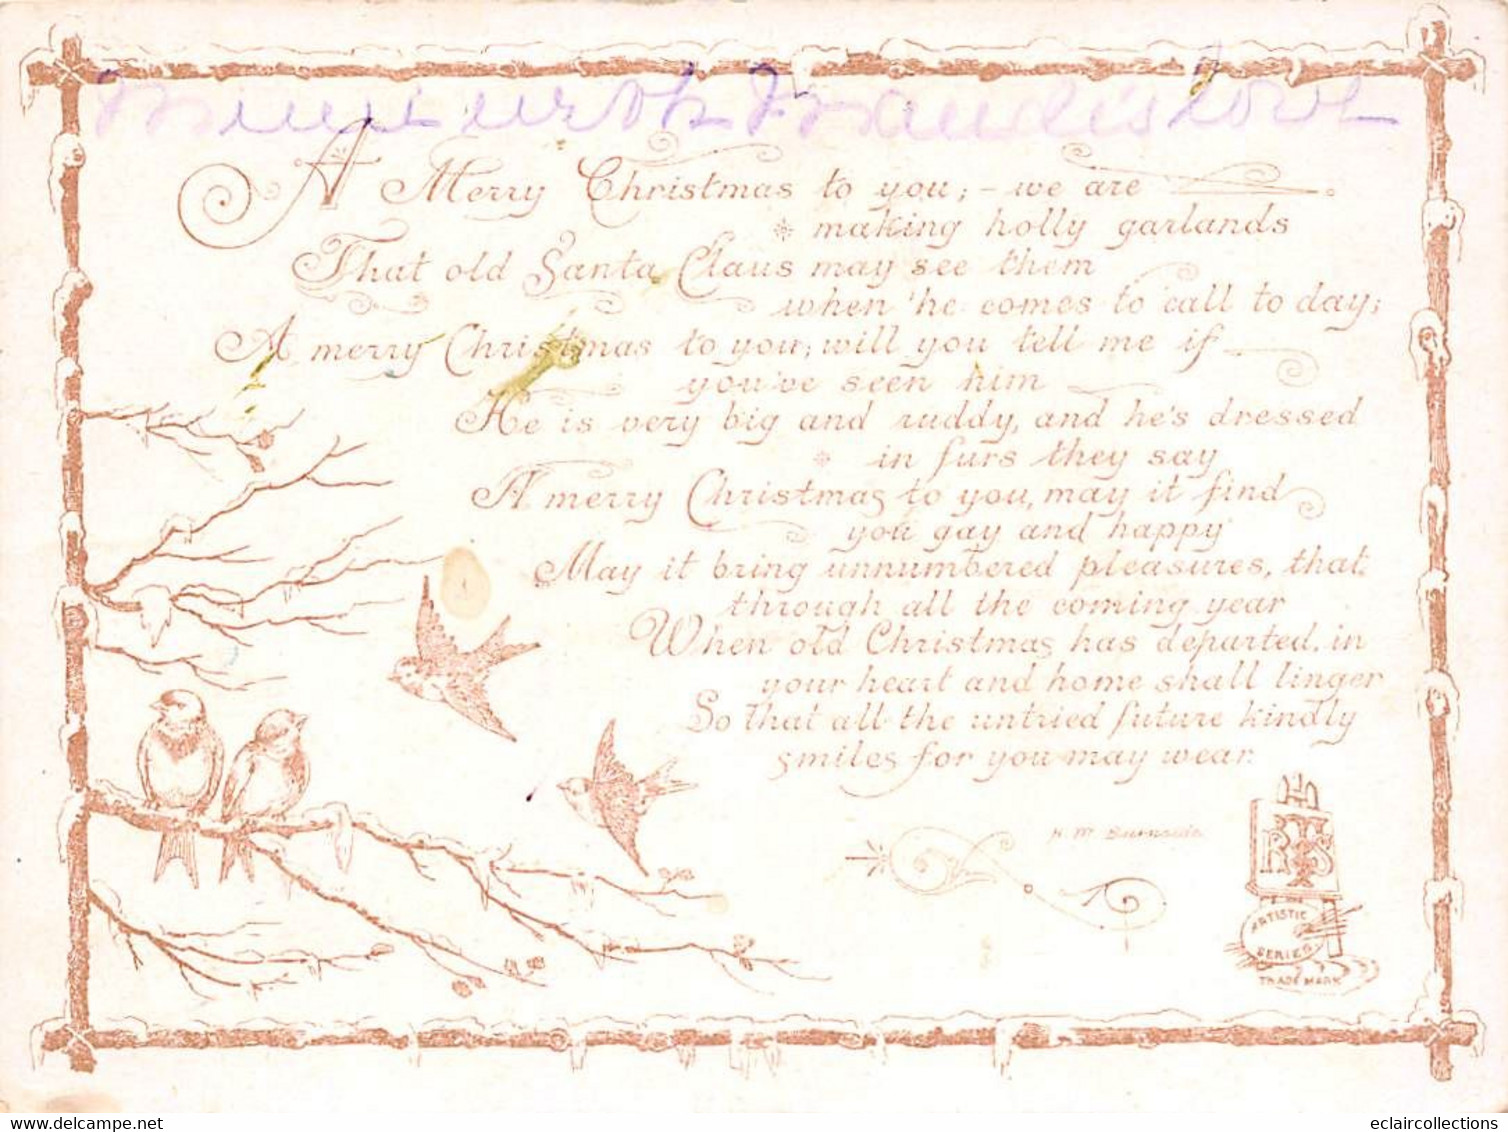 Minnie with Grandie's love
A Merry Christmas to you; - we are
making holly garlands
That old Santa Claus may see them
when he comes to call to day;
A merry Christmas to you; will you tell me if
you've seen him
He is very big and ruddy, and he's dressed
in furs they say
A merry Christmas to you, may it find
you gay and happy
May it bring unnumbered pleasures, that,
through all the coming year
When old Christmas has departed, in
your heart and home shall linger
So that all the untried future kindly
smiles for you may wear.
H. M. Burnside
R T S
ARTISTIC
SERIES
TRADE MARK
Tous droits réservés
eclaircollections